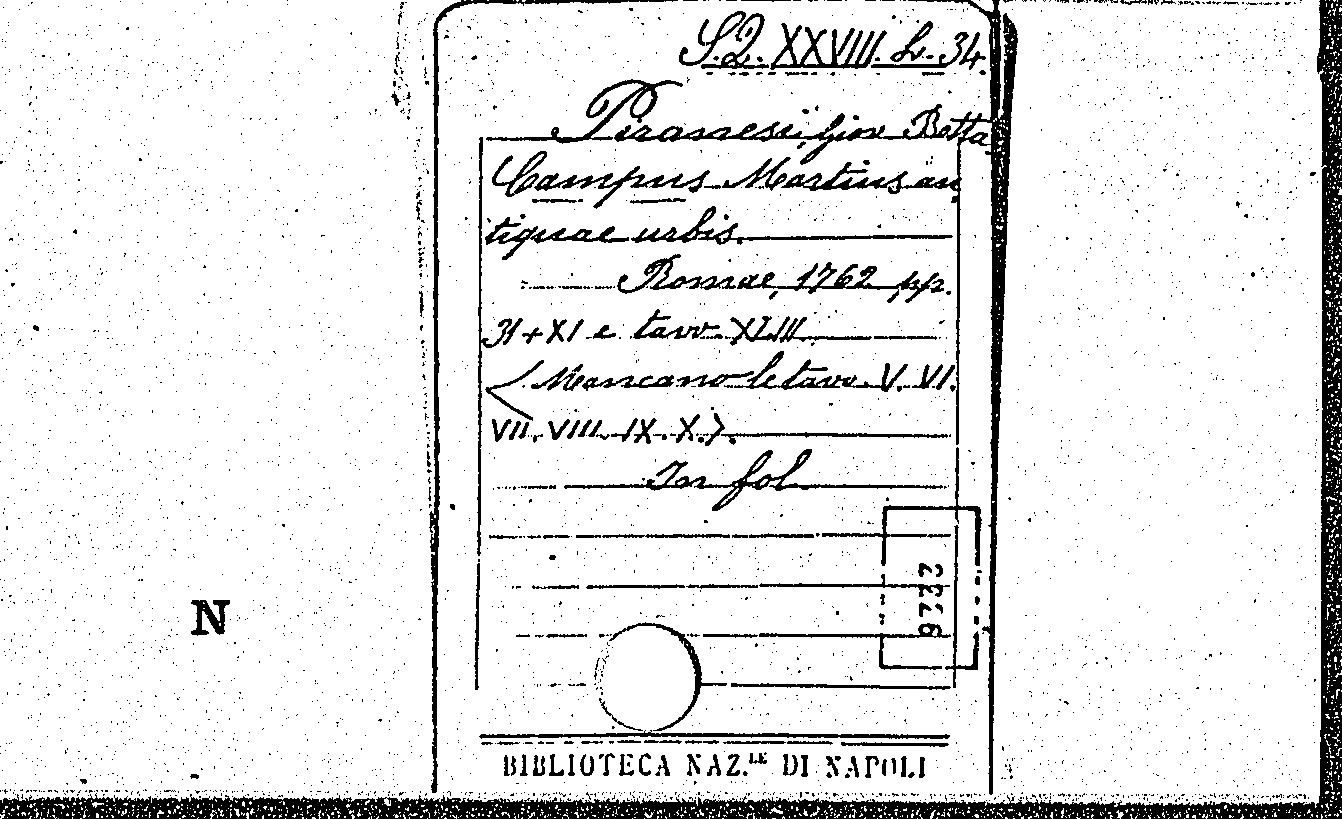 S.Q. XXVIII. L. 34.
Piranesi, Giov Batta
Campus Martius an
tiquae urbis.
Romae, 1762 pp.
31+XI e tavv. XLIII
<Mancano le tavv. V. VI.
VII. VIII. IX. X.>.
In fol.
N
BIBLIOTECA NAZ.LE DI NAPOLI